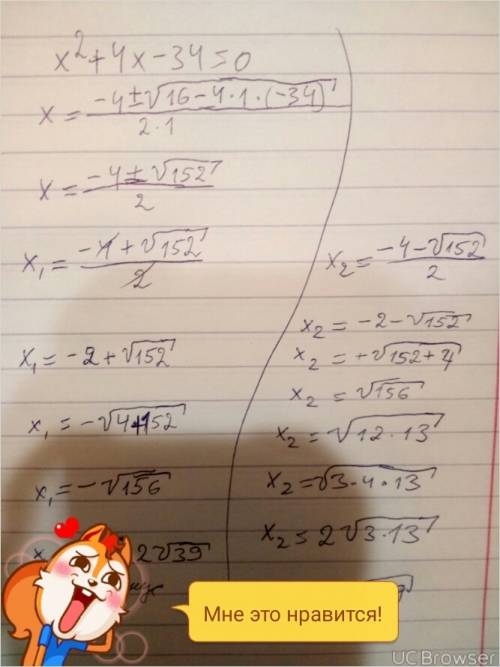 x²+4x-34=0
x = (-4±√(16-4·1·(-34)))/(2·1)
x = (-4±√152)/2
x₁ = (-4+√152)/2
x₁ = -2+√152
x₁ = -√(4+152)
x₁ = -√156
2√39
x₂ = (-4-√152)/2
x₂ = -2-√152
x₂ = +√(152+4)
x₂ = √156
x₂ = √(12·13)
x₂ = √(3·4·13)
x₂ = 2√(3·13)
Мне это нравится!
UCBrowser